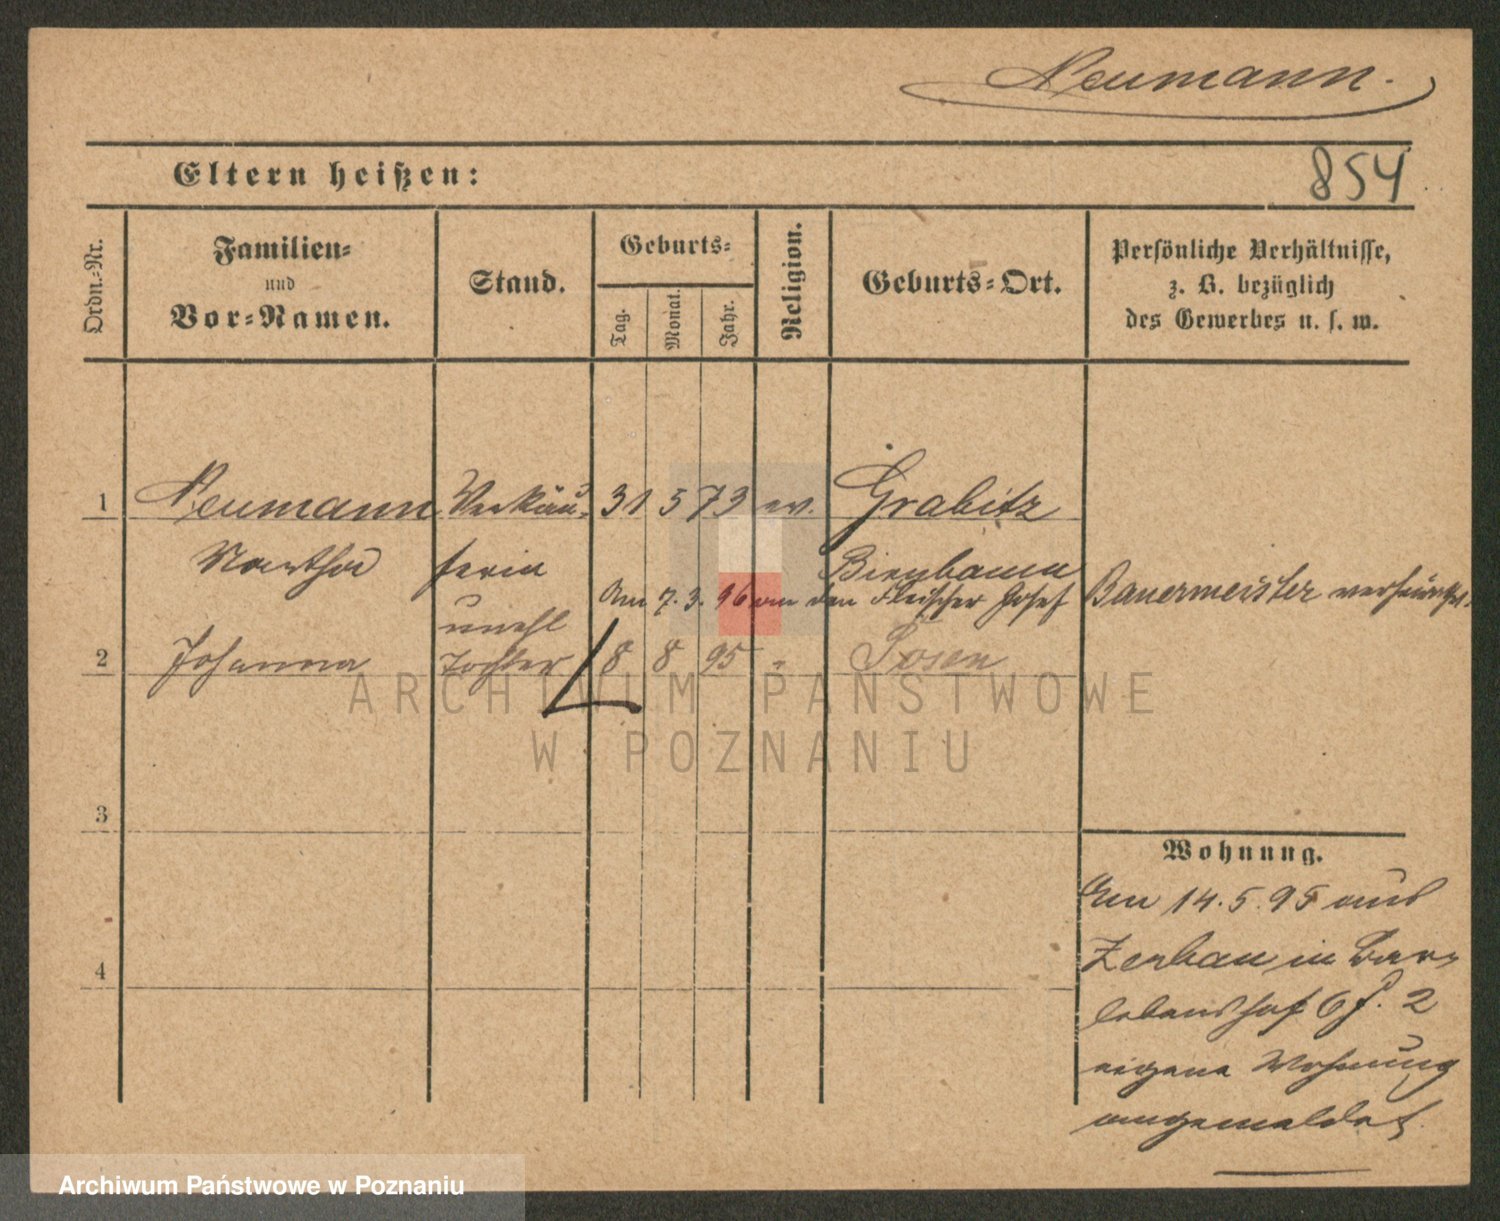 Neumann.
Eltern heißen:
854
Ordn.-Nr.
Familien-
und
Vor-Namen.
Stand.
Geburts-
Tag.
Monat.
Jahr.
Religion.
Geburts-Ort.
Persönliche Verhältnisse,
z. B. bezüglich
des Gewerbes u. s. w.
1 Neumann Verkäu- 31 5 73 ev. Grabitz
Martha ferin Birnbaum
Am 7. 3. 96 an den Fleischer Josef Bauermeister verheirathet.
unehl
2 Johanna Tochter 8 8 95 " Posen
3
4
Wohnung.
Am 14. 5. 95 aus
Zerbau in
lebenshof 6 f. 2
eigene Wohnung
angemeldet
ARCHIWUM PAŃSTWOWE
W POZNANIU
Archiwum Państwowe w Poznaniu